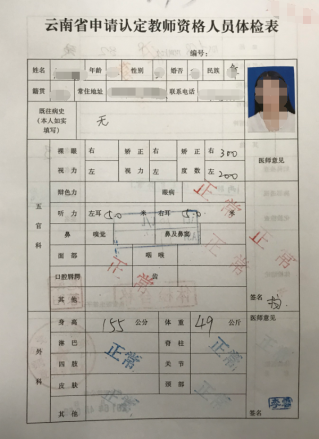 云南省申请认定教师资格人员体检表
编号：
姓名 年龄 性别 婚否 民族
籍贯 常住地址 联系电话
既往病史
（本人如实
填写）
无
五官科
裸眼视力 右 左
矫正视力 右 左
矫正度数 右 300 左 200
医师意见
辩色力 眼病 正常
听力 左耳 5.0 米 右耳 5.0 米
鼻 嗅觉 鼻及鼻窦 正常
面部 咽喉
口腔唇腭 正常 齿 正常
其他
签名
外科
身高 155 公分 体重 49 公斤
医师意见
淋巴 正常 脊柱 正常
四肢 关节
皮肤 正常 颈部 正常
其他
签名